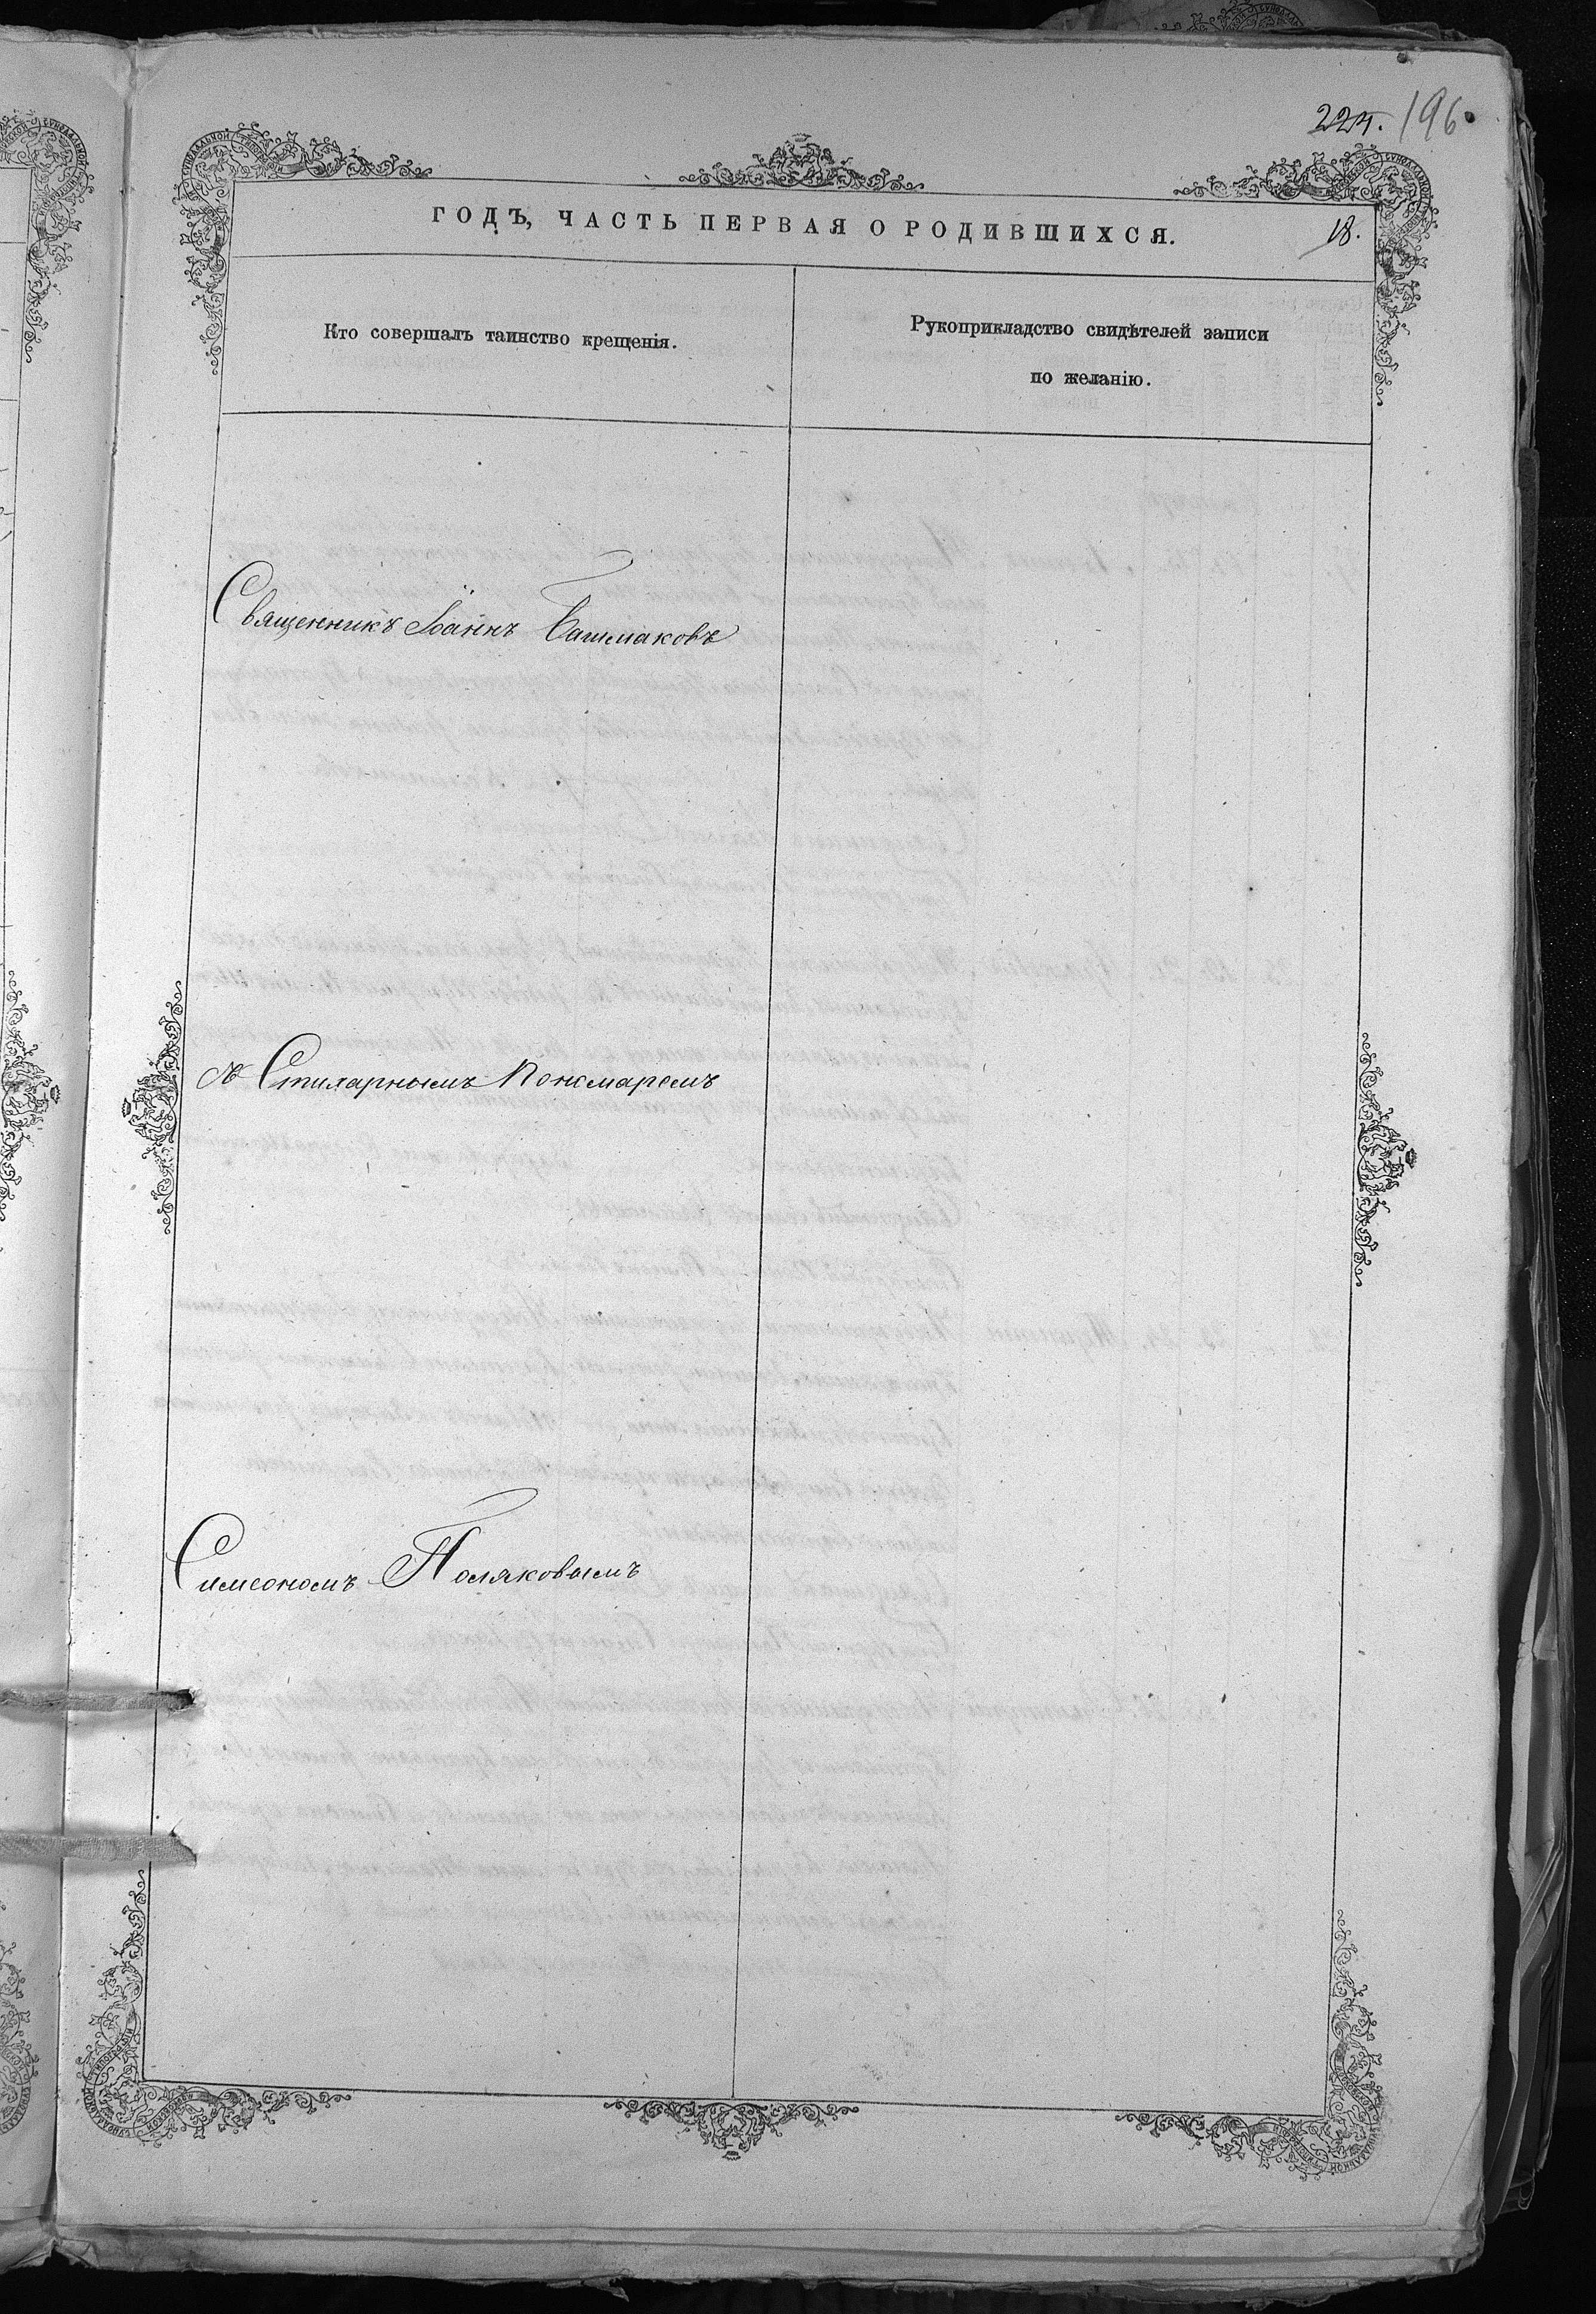 224. 196
ГОДЪ, ЧАСТЬ ПЕРВАЯ О РОДИВШИХСЯ.
18.
Кто совершалъ таинство крещенія.
Рукоприкладство свидѣтелей записи
по желанію.
Священникъ Іоаннъ Башмаковъ
съ Стихарнымъ Пономаремъ
Симеономъ Поляковымъ